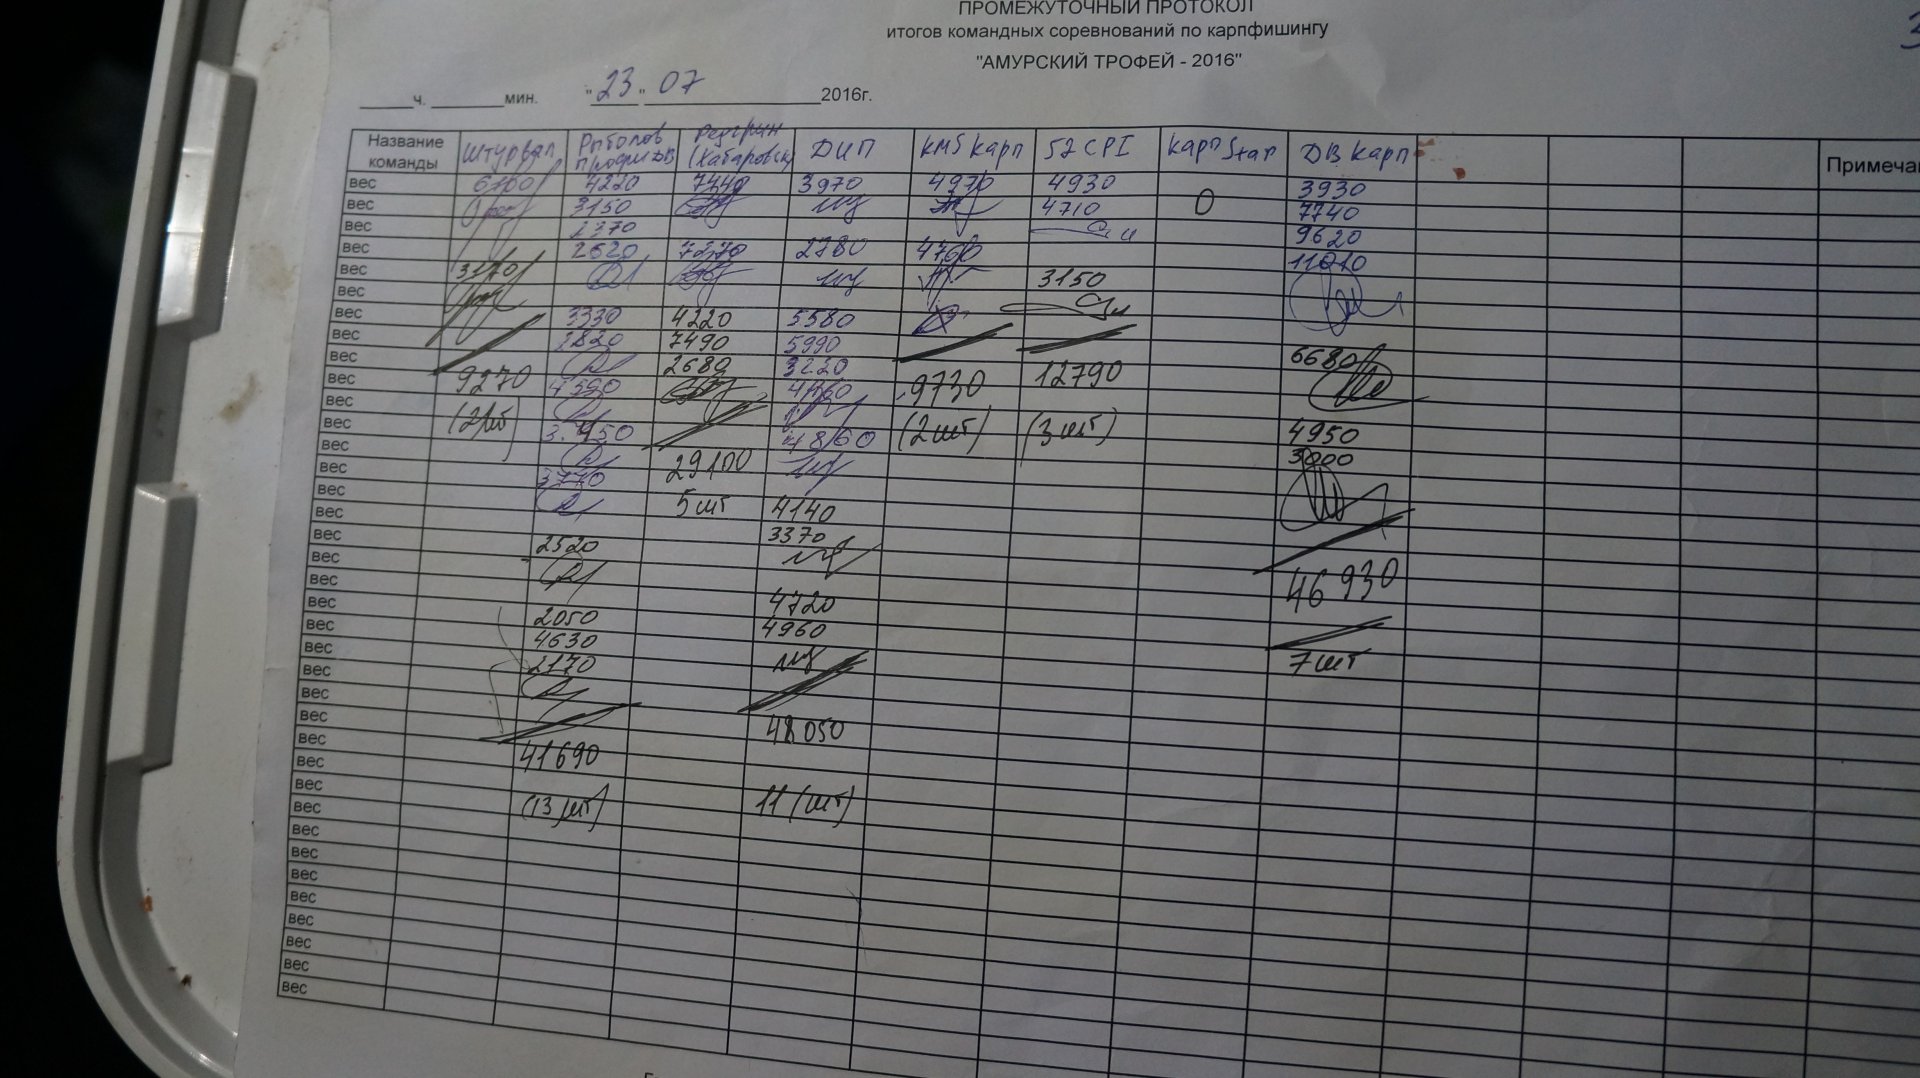 ПРОМЕЖУТОЧНЫЙ ПРОТОКОЛ
итогов командных соревнований по карпфишингу
"АМУРСКИЙ ТРОФЕЙ - 2016"
____ч. ______мин. "23" 07 2016г.
Название команды Штурвал Рыболов Профи ДВ (Хабаровск) ДИП КМS Карп 52 CPI Карп Star ДВ Карп Примеча
вес 6100 4220 7440 3970 4970 4930 0 3930
вес 3150 4710 7740
вес 9620
вес 2620 7270 2780 4760 11010
вес 3170 3150
вес
вес 3330 4220 5580
вес 7490 5990
вес 2680 3220 6680
вес 9270 4390 9730 12790
вес
вес (2 шт) (2 шт) (3 шт) 4950
вес 4860 3000
вес 3770 29100
вес 5 шт
вес 4140
вес 2520 3370
вес
вес 46930
вес 4720
вес 2050 4960
вес 4630
вес 2170 7 шт
вес
вес 48050
вес 41690
вес
вес (13 шт) 11 (шт)
вес
вес
вес
вес
вес
вес
вес
вес